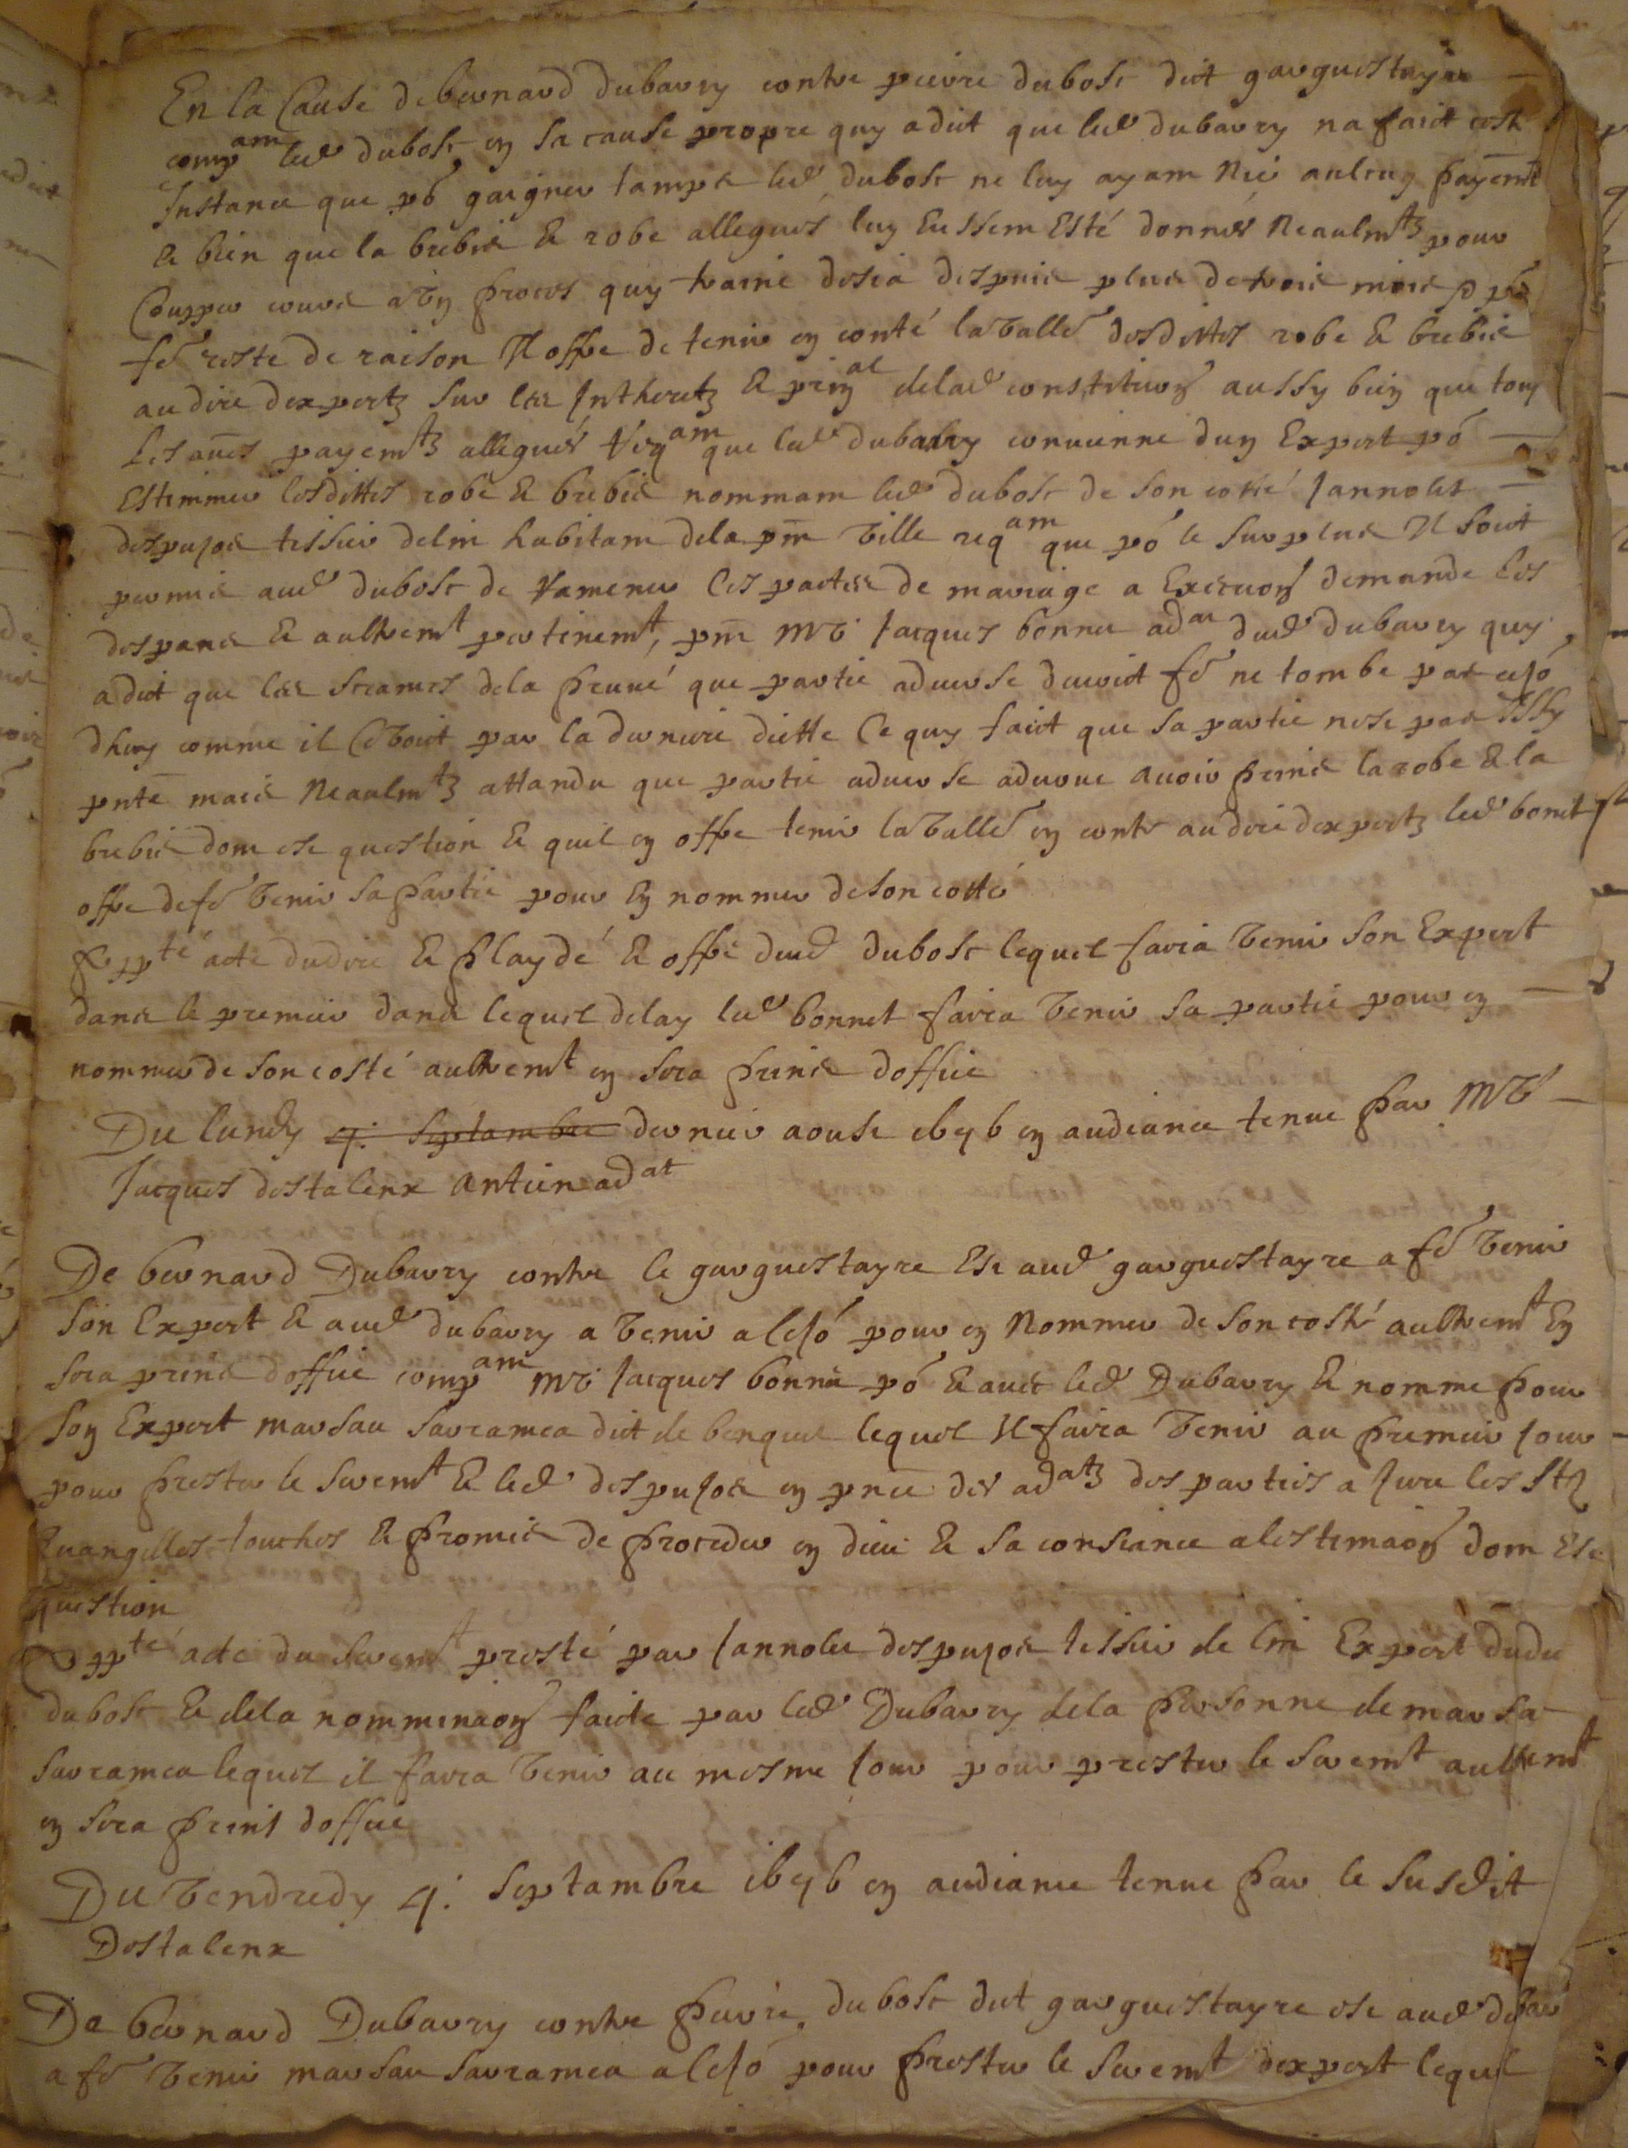 En la Cause de bernard dubarry contre peirre dubosc dict garguestayre
comp^am led dubosc en sa cause propre quy a dict que led dubarry na faict cest
Instance que po gaigner tamps led dubosc ne luy ayam Nié aulcung payemt
& bien que la brebis & robe allegués luy Eussem Esté donnés Neaulmtz pour
Coupper cours a Un proces quy traine desia despuis plus de trois mois
fe reste de raison Il offre de tenir en conté la Valleur desdittes robe & brebis
au dire dexpertz sur les Intheretz & prin^al de lad constitution aussy bien que tous
Les aues payemtz allegués Req^am que led dubarry convienne dun Expert po
Estimmer lesdittes robe & brebis nommam led dubosc de son costé Jannolet
despujos tissier de lin habitam de la pnt Ville req^am que po le surplus Il soict
permis aud dubosc de Ramener les pactes de mariage a Execuon demande les
despans & aultremt pertinemt, pnt Me Jacques bonnet ad^at dud dubarry quy
a dict que les de la preuué que partie aduerse deuoict fe ne tombe pas cejo
dhuy comme il Ce Voict par la derniere dictte Ce quy faict que sa partie nest pas Issy
pnte mais Neaulmtz attandu que partie aduerse aduoue auoir prins la robe & la
brebis dom est question & quil en offre tenir la Valleur en conte au dire dexpertz led bonet
offre de fe Venir sa partie pour En nommer de son cotté
App^té acte du dire & playdé & offre dud dubosc lequel faira Venir son Expert
dans le premier dans lequel delay led bonnet faira Venir sa partie pour en
nommer de son costé aultremt en sera prins doffice
Du lundy 4. Septambre dernier aoust ibc96 en audiance tenue par Me
Jacques destalenx antien ad^at
De bernard Dubarry contre le garguestayre Est aud garguestayre a fe Venir
Son Expert & aud dubarry a Venir a cejo pour en Nommer de son costé aultremt En
sera prins doffice comp^am Me Jacques bonnet po & auec led Dubarry & nomme pour
son Expert marsau sarramea dict de benquet lequel Il faira Venir au premier Jour
pour prester le sermt & led despujos en pnce des ad^atz des parties a Jure les stz
Euangilles touches & promis de proceder en dieu & sa consiance a lestimaon dom Est
question
App^té acte du sermt presté par Jannolet despujos tissier de lin Expert dudit
dubosc & de la nomminaon faicte par led Dubarry de la personne de marsa
sarramea lequel il faira Venir au mesme Jour pour prester le sermt aultremt
en sera prins doffice
Du Vendredy 4. Septambre ibc96 en audiance tenue par le susdit
Destalenx
De bernard Dubarry contre peirre dubosc dict garguestayre est aud dubar
a fe Venir marsau sarramea a cejo pour prester le sermt dexpert lequel